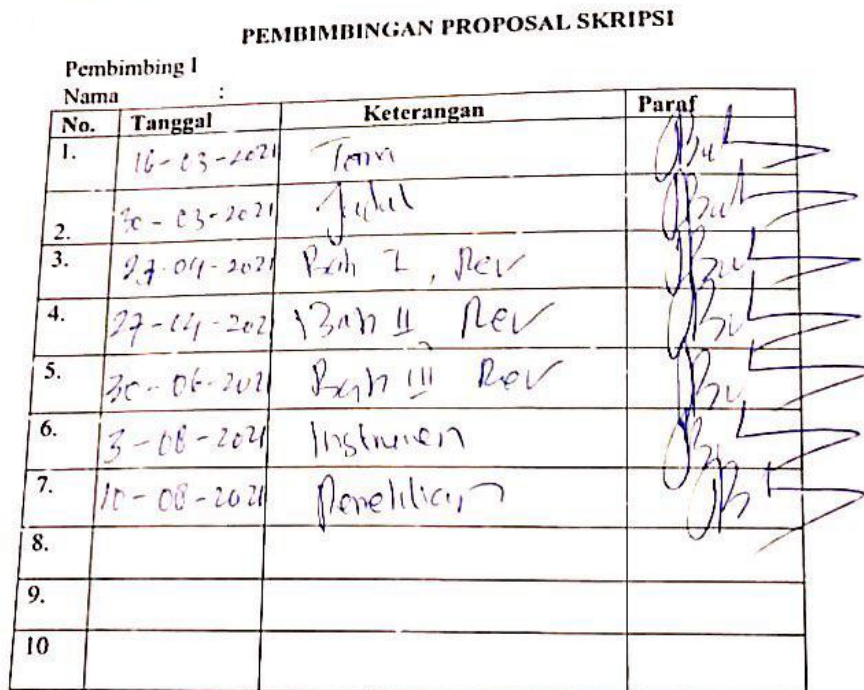 PEMBIMBINGAN PROPOSAL SKRIPSI
Pembimbing I
Nama :
No. Tanggal Keterangan Paraf
1. 16-03-2021
2. 30-03-2021 Judul
3. 27-04-2021 Bab I, Rev
4. 27-04-202 Bab II Rev
5. 30-06-2021 Bab III Rev
6. 3-08-2021 Instrumen
7. 10-08-2021 Penelitian
8.
9.
10